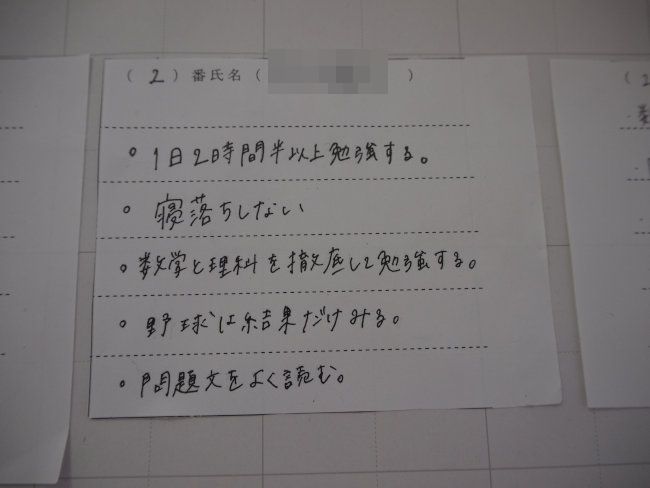 ( 2 ) 番氏名 ( )
。1日2時間半以上勉強する。
。寝落ちしない
。数学と理科を徹底して勉強する。
。野球は結果だけみる。
。問題文をよく読む。
(2